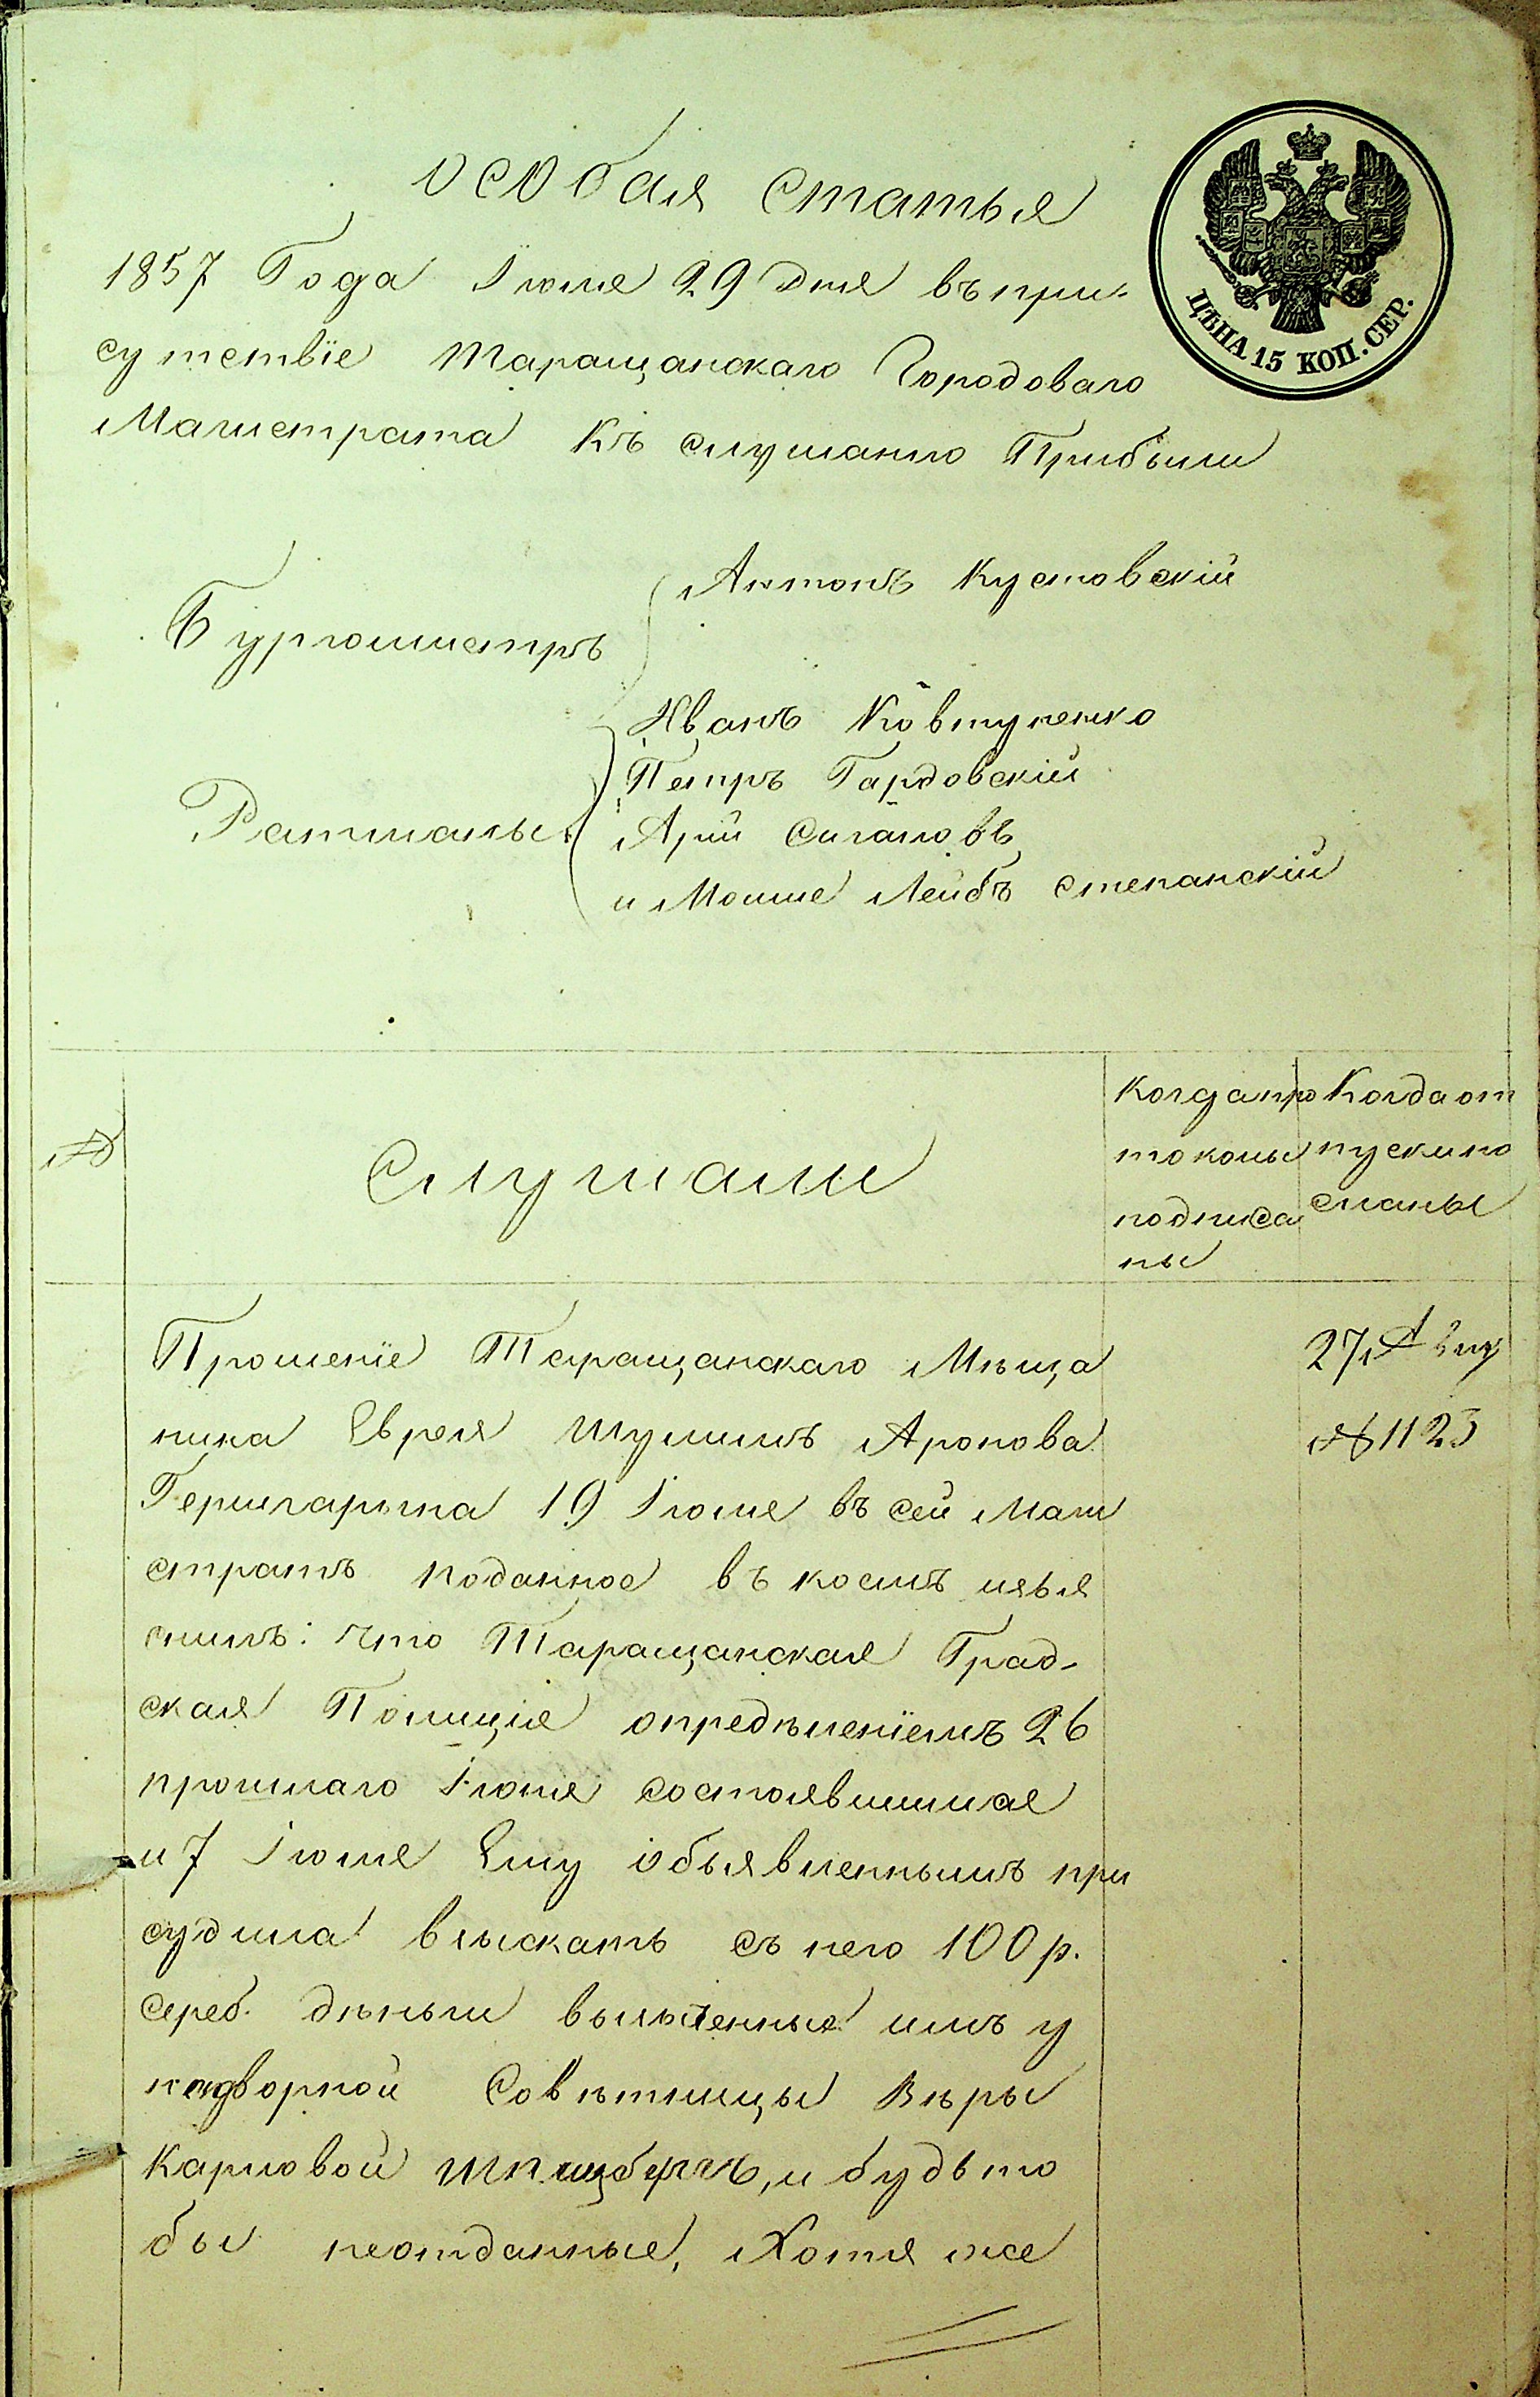 Особая статья
1857 Года Іюля 29 Дня въ при-
сутствіе Таращанскаго Городоваго
Магистрата къ слушанію Прибыли
ЦѢНА 15 КОП. СЕР.
Бургомистръ
Антонъ Кустовскій
Ратманы
Иванъ Ковтуненко
Петръ Гардовскій
Арій Сигаловъ
и Мошко Лейбъ Степанскій
№
Слушали
Когда про
токолы
подписа
ны
Когда от
пуски по
сланы
Прошеніе Таращанскаго Мѣща
нина Еврея Шулимъ Аронова
Гершгарына 19 Іюля въ сей Маги
стратъ поданное въ коемъ изъя
снилъ: что Таращанская Град-
ская Полиція опредѣленіемъ 26
прошлаго Іюня состоявшимся
и 7 Іюля Ему объявленнымъ при
судила взыскать съ него 100 р.
сереб. дѣньги взыченные имъ у
надворной Совѣтницы Вѣры
Карловой Шпицбергъ, и будьто
бы неотданные, Хотя же
27 Авгу
№ 1123